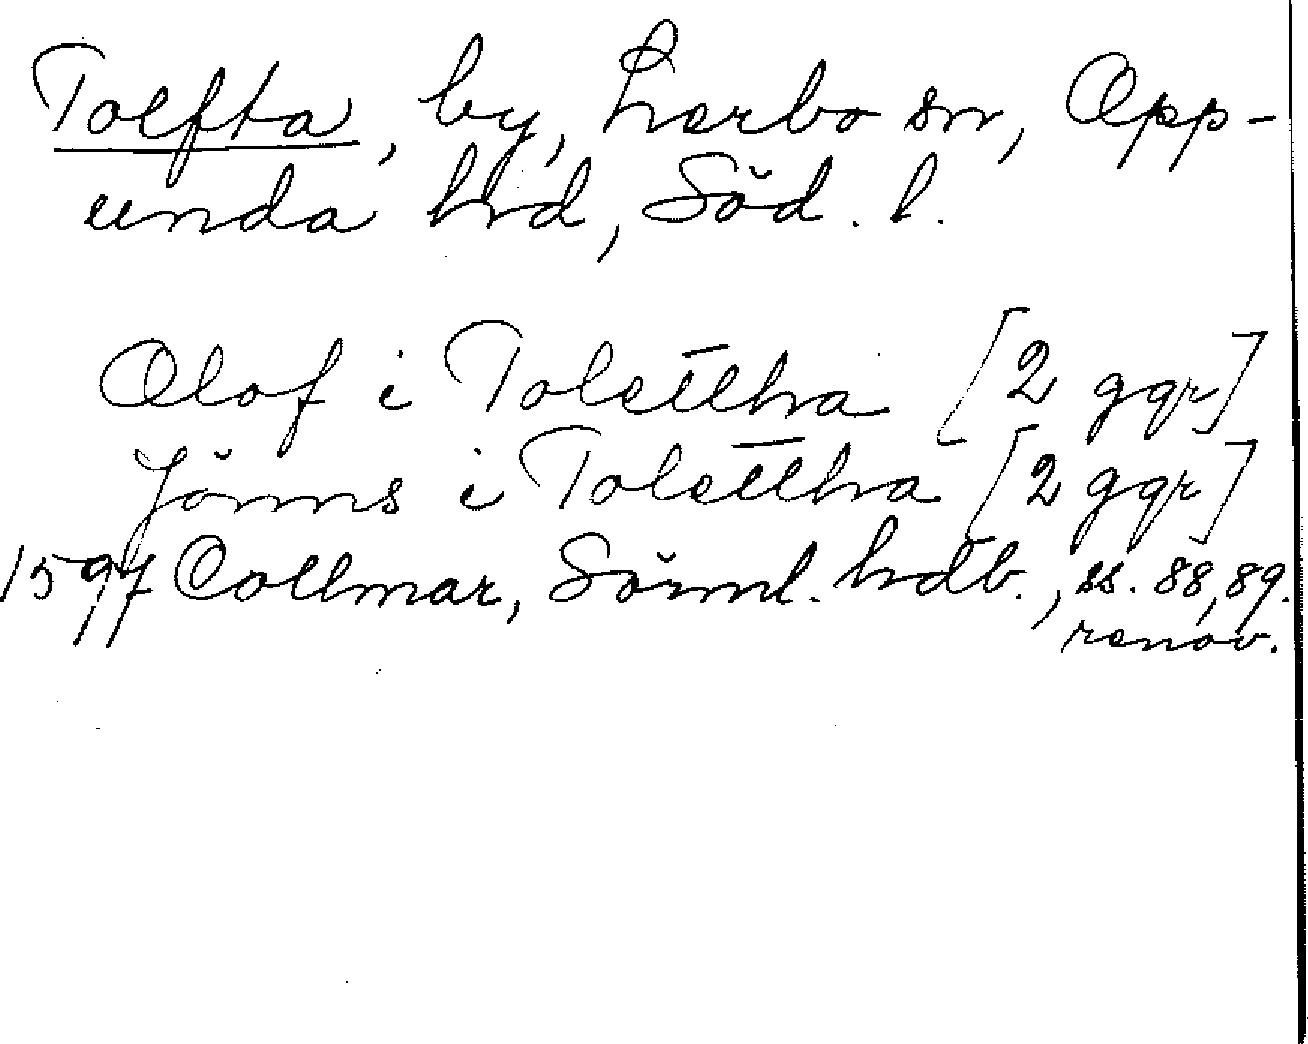 Tolfta, by, Lerbo sn, Opp-
unda hrd, Söd. l.
Olof i Toletthra [2 ggr]
Jönns i Toletthra [2 ggr]
1597 Collmar, Sörml. hdb., ss. 88, 89.
renov.